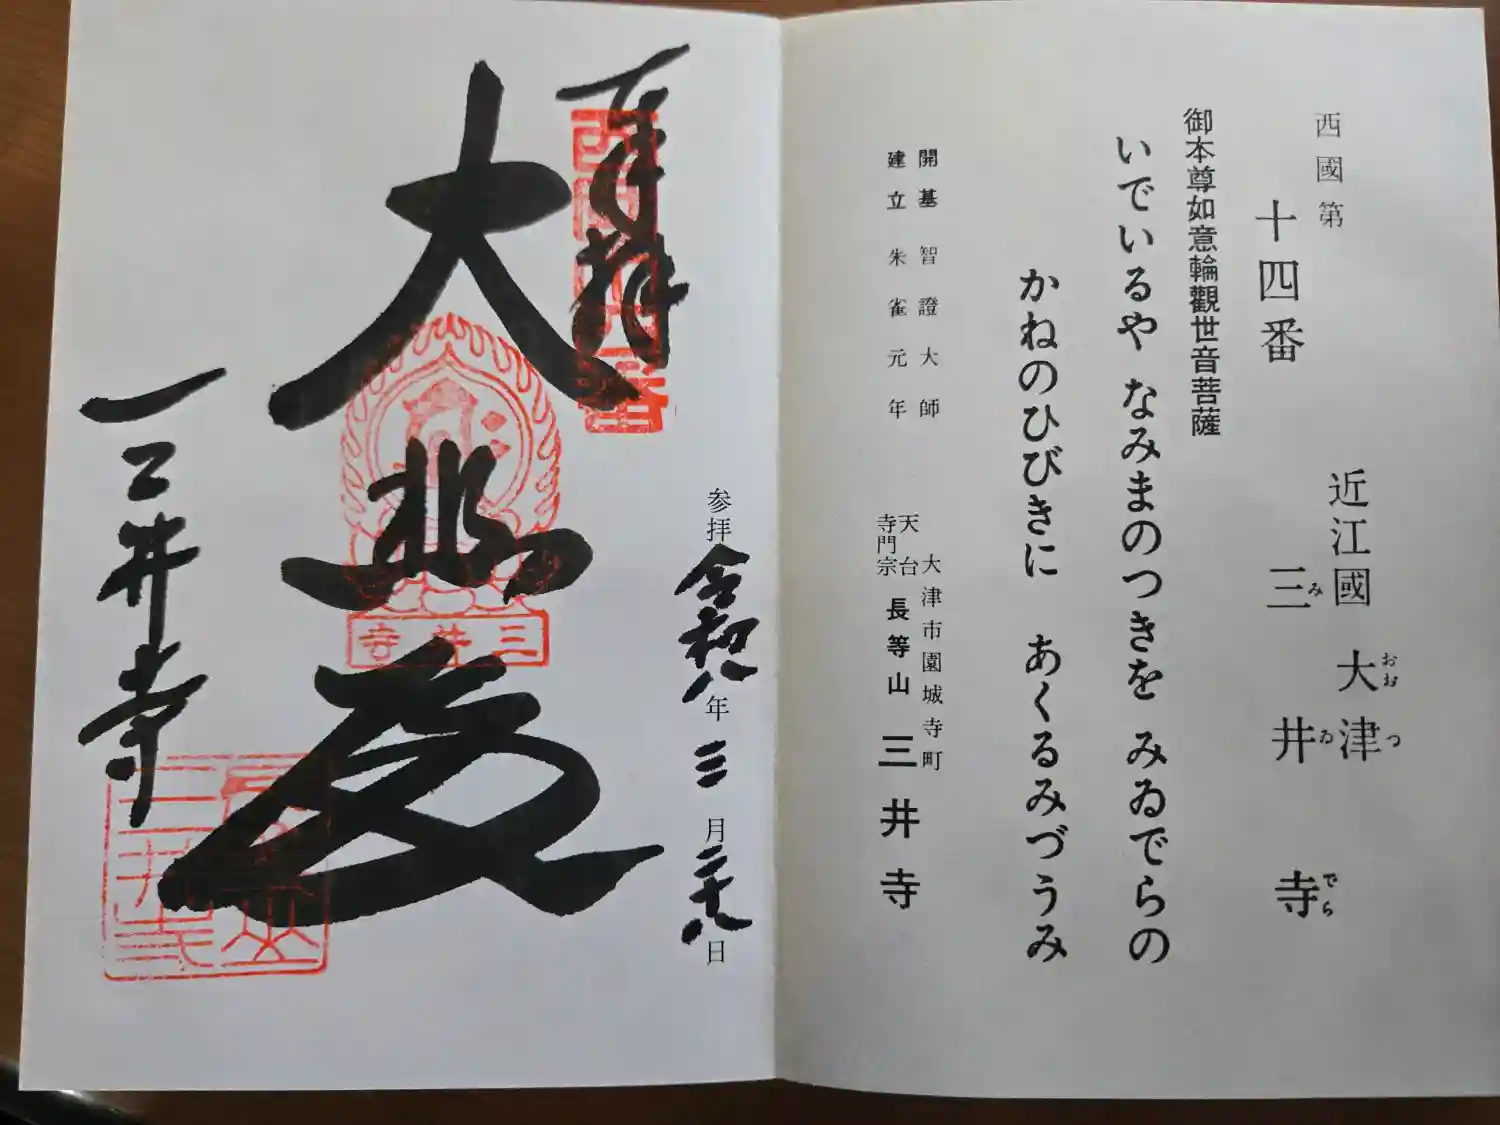 西國第
十四番
近江國 大津
おおつ
三井寺
みゐでら
御本尊如意輪觀世音菩薩
いでいるや なみまのつきを みゐでらの
かねのひびきに あくるみづうみ
開基 智證大師
建立 朱雀元年
大津市園城寺町
天台寺門宗
長等山 三井寺
参拝 令和八年 三月二十八日
奉拝
大悲殿
三井寺
三井寺